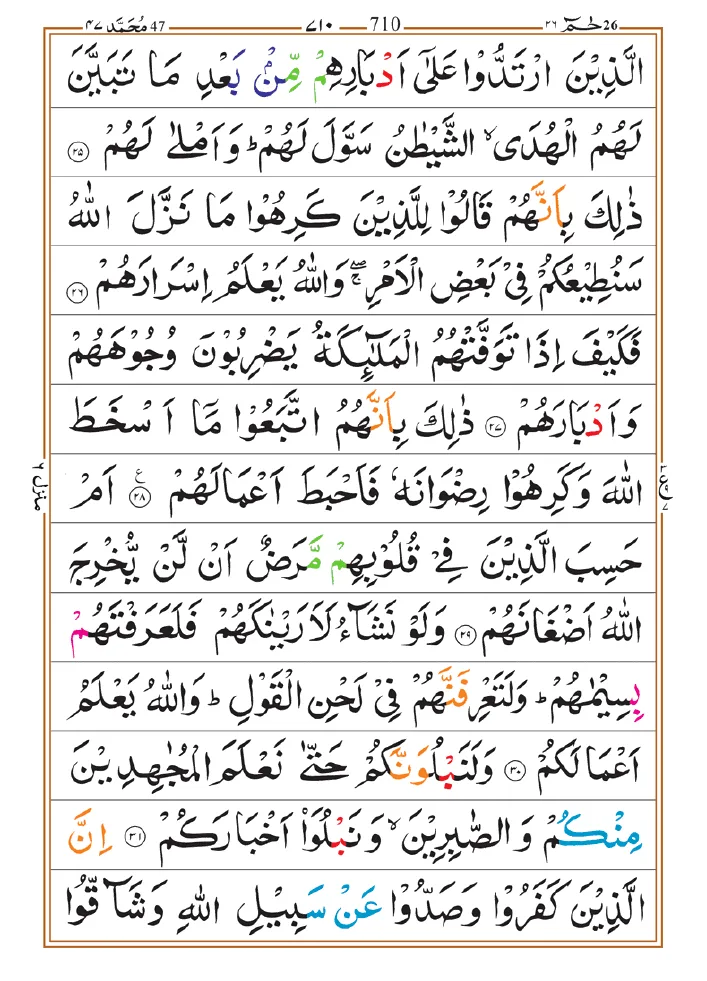 حٰمٓ 26 ٢٦ 710 ٧١٠ مُحَمَّد 47 ٤٧
الَّذِيْنَ ارْتَدُّوْا عَلٰٓى اَدْبَارِهِمْ مِّنْۢ بَعْدِ مَا تَبَيَّنَ
لَهُمُ الْهُدَى ۙ الشَّيْطٰنُ سَوَّلَ لَهُمْ ؕ وَاَمْلٰى لَهُمْ ۝٢٥
ذٰلِكَ بِاَنَّهُمْ قَالُوْا لِلَّذِيْنَ كَرِهُوْا مَا نَزَّلَ اللّٰهُ
سَنُطِيْعُكُمْ فِيْ بَعْضِ الْاَمْرِ ۖۚ وَاللّٰهُ يَعْلَمُ اِسْرَارَهُمْ ۝٢٦
فَكَيْفَ اِذَا تَوَفَّتْهُمُ الْمَلٰٓئِكَةُ يَضْرِبُوْنَ وُجُوْهَهُمْ
وَاَدْبَارَهُمْ ۝٢٧ ذٰلِكَ بِاَنَّهُمُ اتَّبَعُوْا مَاۤ اَسْخَطَ
اللّٰهَ وَكَرِهُوْا رِضْوَانَهٗ فَاَحْبَطَ اَعْمَالَهُمْ ۝٢٨ ع اَمْ
حَسِبَ الَّذِيْنَ فِيْ قُلُوْبِهِمْ مَّرَضٌ اَنْ لَّنْ يُّخْرِجَ
اللّٰهُ اَضْغَانَهُمْ ۝٢٩ وَلَوْ نَشَآءُ لَاَرَيْنٰكَهُمْ فَلَعَرَفْتَهُمْ
بِسِيْمٰهُمْ ؕ وَلَتَعْرِفَنَّهُمْ فِيْ لَحْنِ الْقَوْلِ ؕ وَاللّٰهُ يَعْلَمُ
اَعْمَالَكُمْ ۝٣٠ وَلَنَبْلُوَنَّكُمْ حَتّٰى نَعْلَمَ الْمُجٰهِدِيْنَ
مِنْكُمْ وَالصّٰبِرِيْنَ ۙ وَنَبْلُوَا۟ اَخْبَارَكُمْ ۝٣١ اِنَّ
الَّذِيْنَ كَفَرُوْا وَصَدُّوْا عَنْ سَبِيْلِ اللّٰهِ وَشَآقُّوا
منزل ٦